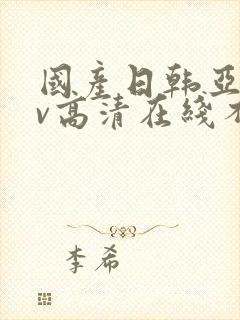 國產日韩亞
v高清在綫不
李希